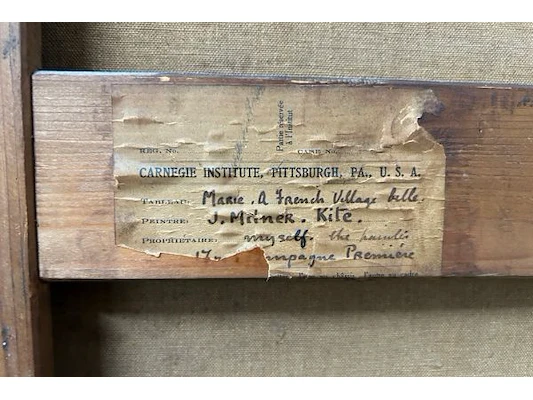 Partie réservée
à l'Institut
REG. No.
CASE No.
CARNEGIE INSTITUTE, PITTSBURGH, PA., U. S. A.
TABLEAU: Marie. A French Village belle.
PEINTRE: J. Milner. Kite.
PROPRIETAIRE: myself. the
17 mpagne Première